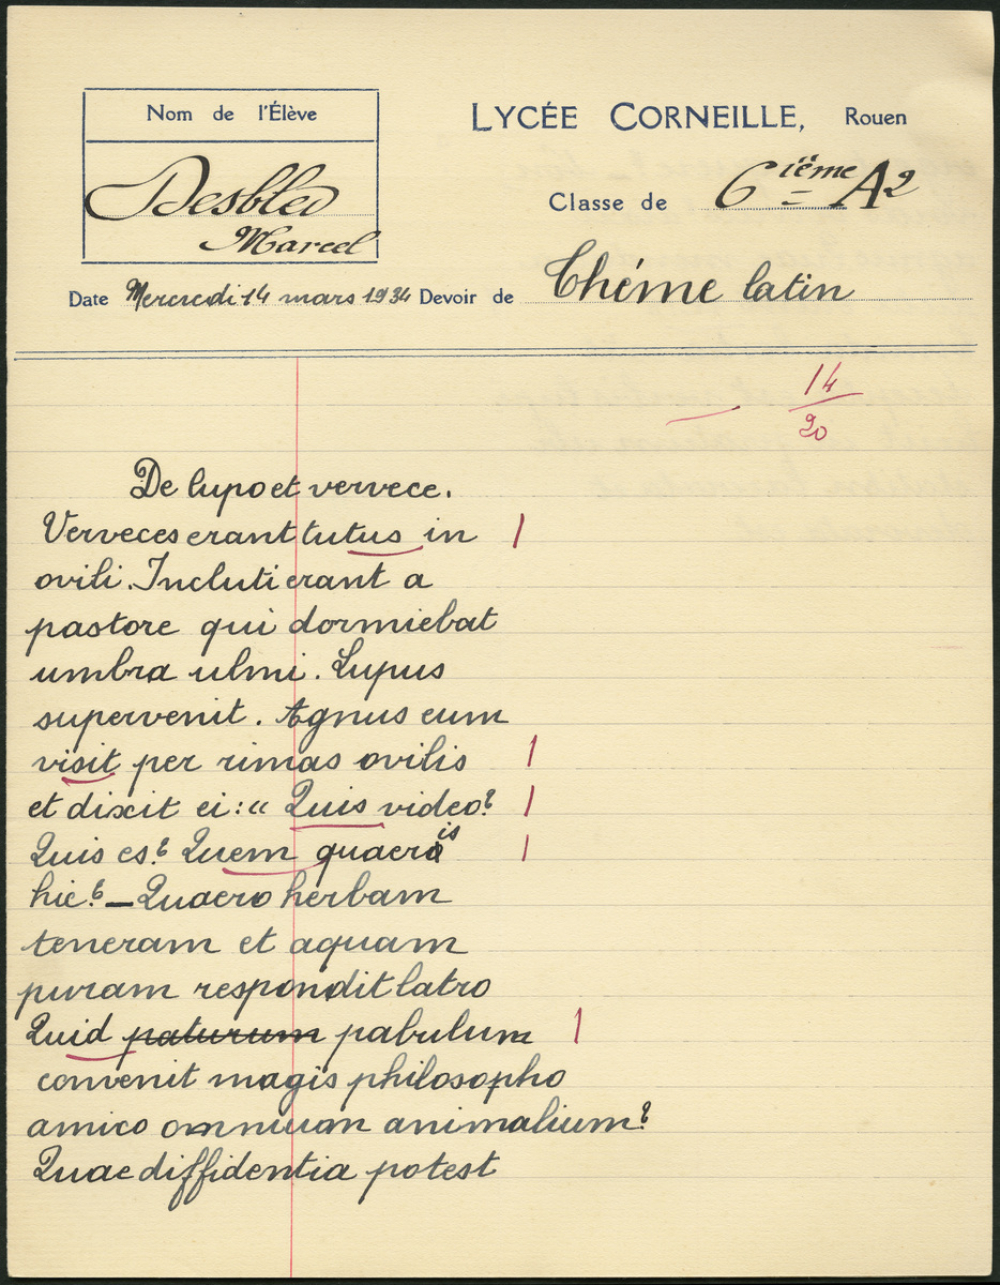 Nom de l'Élève
LYCÉE CORNEILLE, Rouen
Desbled
Marcel
Classe de 6ième A2
Date Mercredi 14 mars 1934 Devoir de Théme latin
14
20
De lupo et vervece.
Verveces erant tutus in
ovili. Inclusi erant a
pastore qui dormiebat
umbra ulmi. Lupus
supervenit. Agnus eum
visit per rimas ovilis
et dixit ei : « Quis video?
Quis es? Quem quaeris
hic? — Quaero herbam
teneram et aquam
puram respondit latro
Quid paturum pabulum
convenit magis philosopho
amico omnium animalium?
Quae diffidentia potest